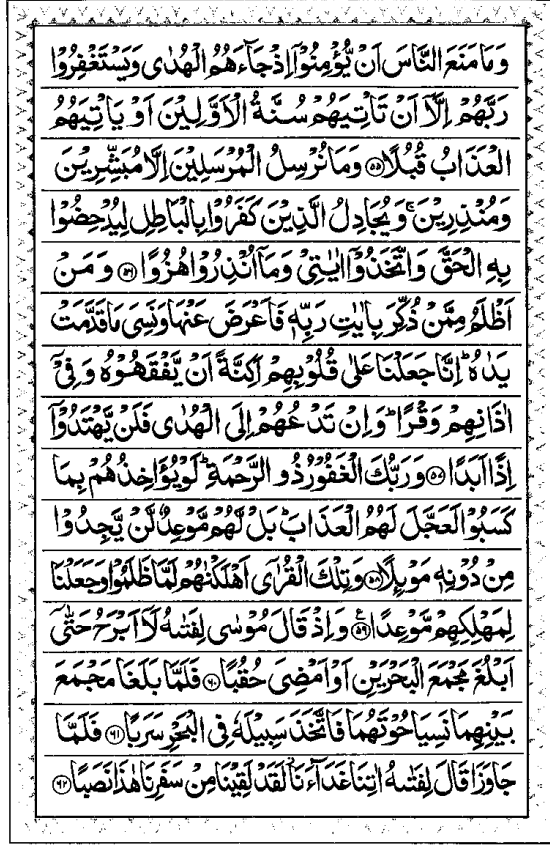 وَمَا مَنَعَ النَّاسَ اَنْ يُّؤْمِنُوْۤا اِذْ جَآءَهُمُ الْهُدٰى وَيَسْتَغْفِرُوْا
رَبَّهُمْ اِلَّاۤ اَنْ تَاْتِيَهُمْ سُنَّةُ الْاَوَّلِيْنَ اَوْ يَاْتِيَهُمُ
الْعَذَابُ قُبُلًا ﴿۵۵﴾ وَمَا نُرْسِلُ الْمُرْسَلِيْنَ اِلَّا مُبَشِّرِيْنَ
وَمُنْذِرِيْنَ ۚ وَيُجَادِلُ الَّذِيْنَ كَفَرُوْا بِالْبَاطِلِ لِيُدْحِضُوْا
بِهِ الْحَقَّ وَاتَّخَذُوْۤا اٰيٰتِيْ وَمَاۤ اُنْذِرُوْا هُزُوًا ﴿۵۶﴾ وَمَنْ
اَظْلَمُ مِمَّنْ ذُكِّرَ بِاٰيٰتِ رَبِّهٖ فَاَعْرَضَ عَنْهَا وَنَسِيَ مَا قَدَّمَتْ
يَدٰهُ ؕ اِنَّا جَعَلْنَا عَلٰى قُلُوْبِهِمْ اَكِنَّةً اَنْ يَّفْقَهُوْهُ وَفِيْۤ
اٰذَانِهِمْ وَقْرًا ؕ وَاِنْ تَدْعُهُمْ اِلَى الْهُدٰى فَلَنْ يَّهْتَدُوْۤا
اِذًا اَبَدًا ﴿۵۷﴾ وَرَبُّكَ الْغَفُوْرُ ذُو الرَّحْمَةِ ؕ لَوْ يُؤَاخِذُهُمْ بِمَا
كَسَبُوْا لَعَجَّلَ لَهُمُ الْعَذَابَ ؕ بَلْ لَّهُمْ مَّوْعِدٌ لَّنْ يَّجِدُوْا
مِنْ دُوْنِهٖ مَوْىِٕلًا ﴿۵۸﴾ وَتِلْكَ الْقُرٰۤى اَهْلَكْنٰهُمْ لَمَّا ظَلَمُوْا وَجَعَلْنَا
لِمَهْلِكِهِمْ مَّوْعِدًا ﴿۵۹﴾ ع وَاِذْ قَالَ مُوْسٰى لِفَتٰىهُ لَاۤ اَبْرَحُ حَتّٰۤى
اَبْلُغَ مَجْمَعَ الْبَحْرَيْنِ اَوْ اَمْضِيَ حُقُبًا ﴿۶۰﴾ فَلَمَّا بَلَغَا مَجْمَعَ
بَيْنِهِمَا نَسِيَا حُوْتَهُمَا فَاتَّخَذَ سَبِيْلَهٗ فِي الْبَحْرِ سَرَبًا ﴿۶۱﴾ فَلَمَّا
جَاوَزَا قَالَ لِفَتٰىهُ اٰتِنَا غَدَآءَنَا لَقَدْ لَقِيْنَا مِنْ سَفَرِنَا هٰذَا نَصَبًا ﴿۶۲﴾